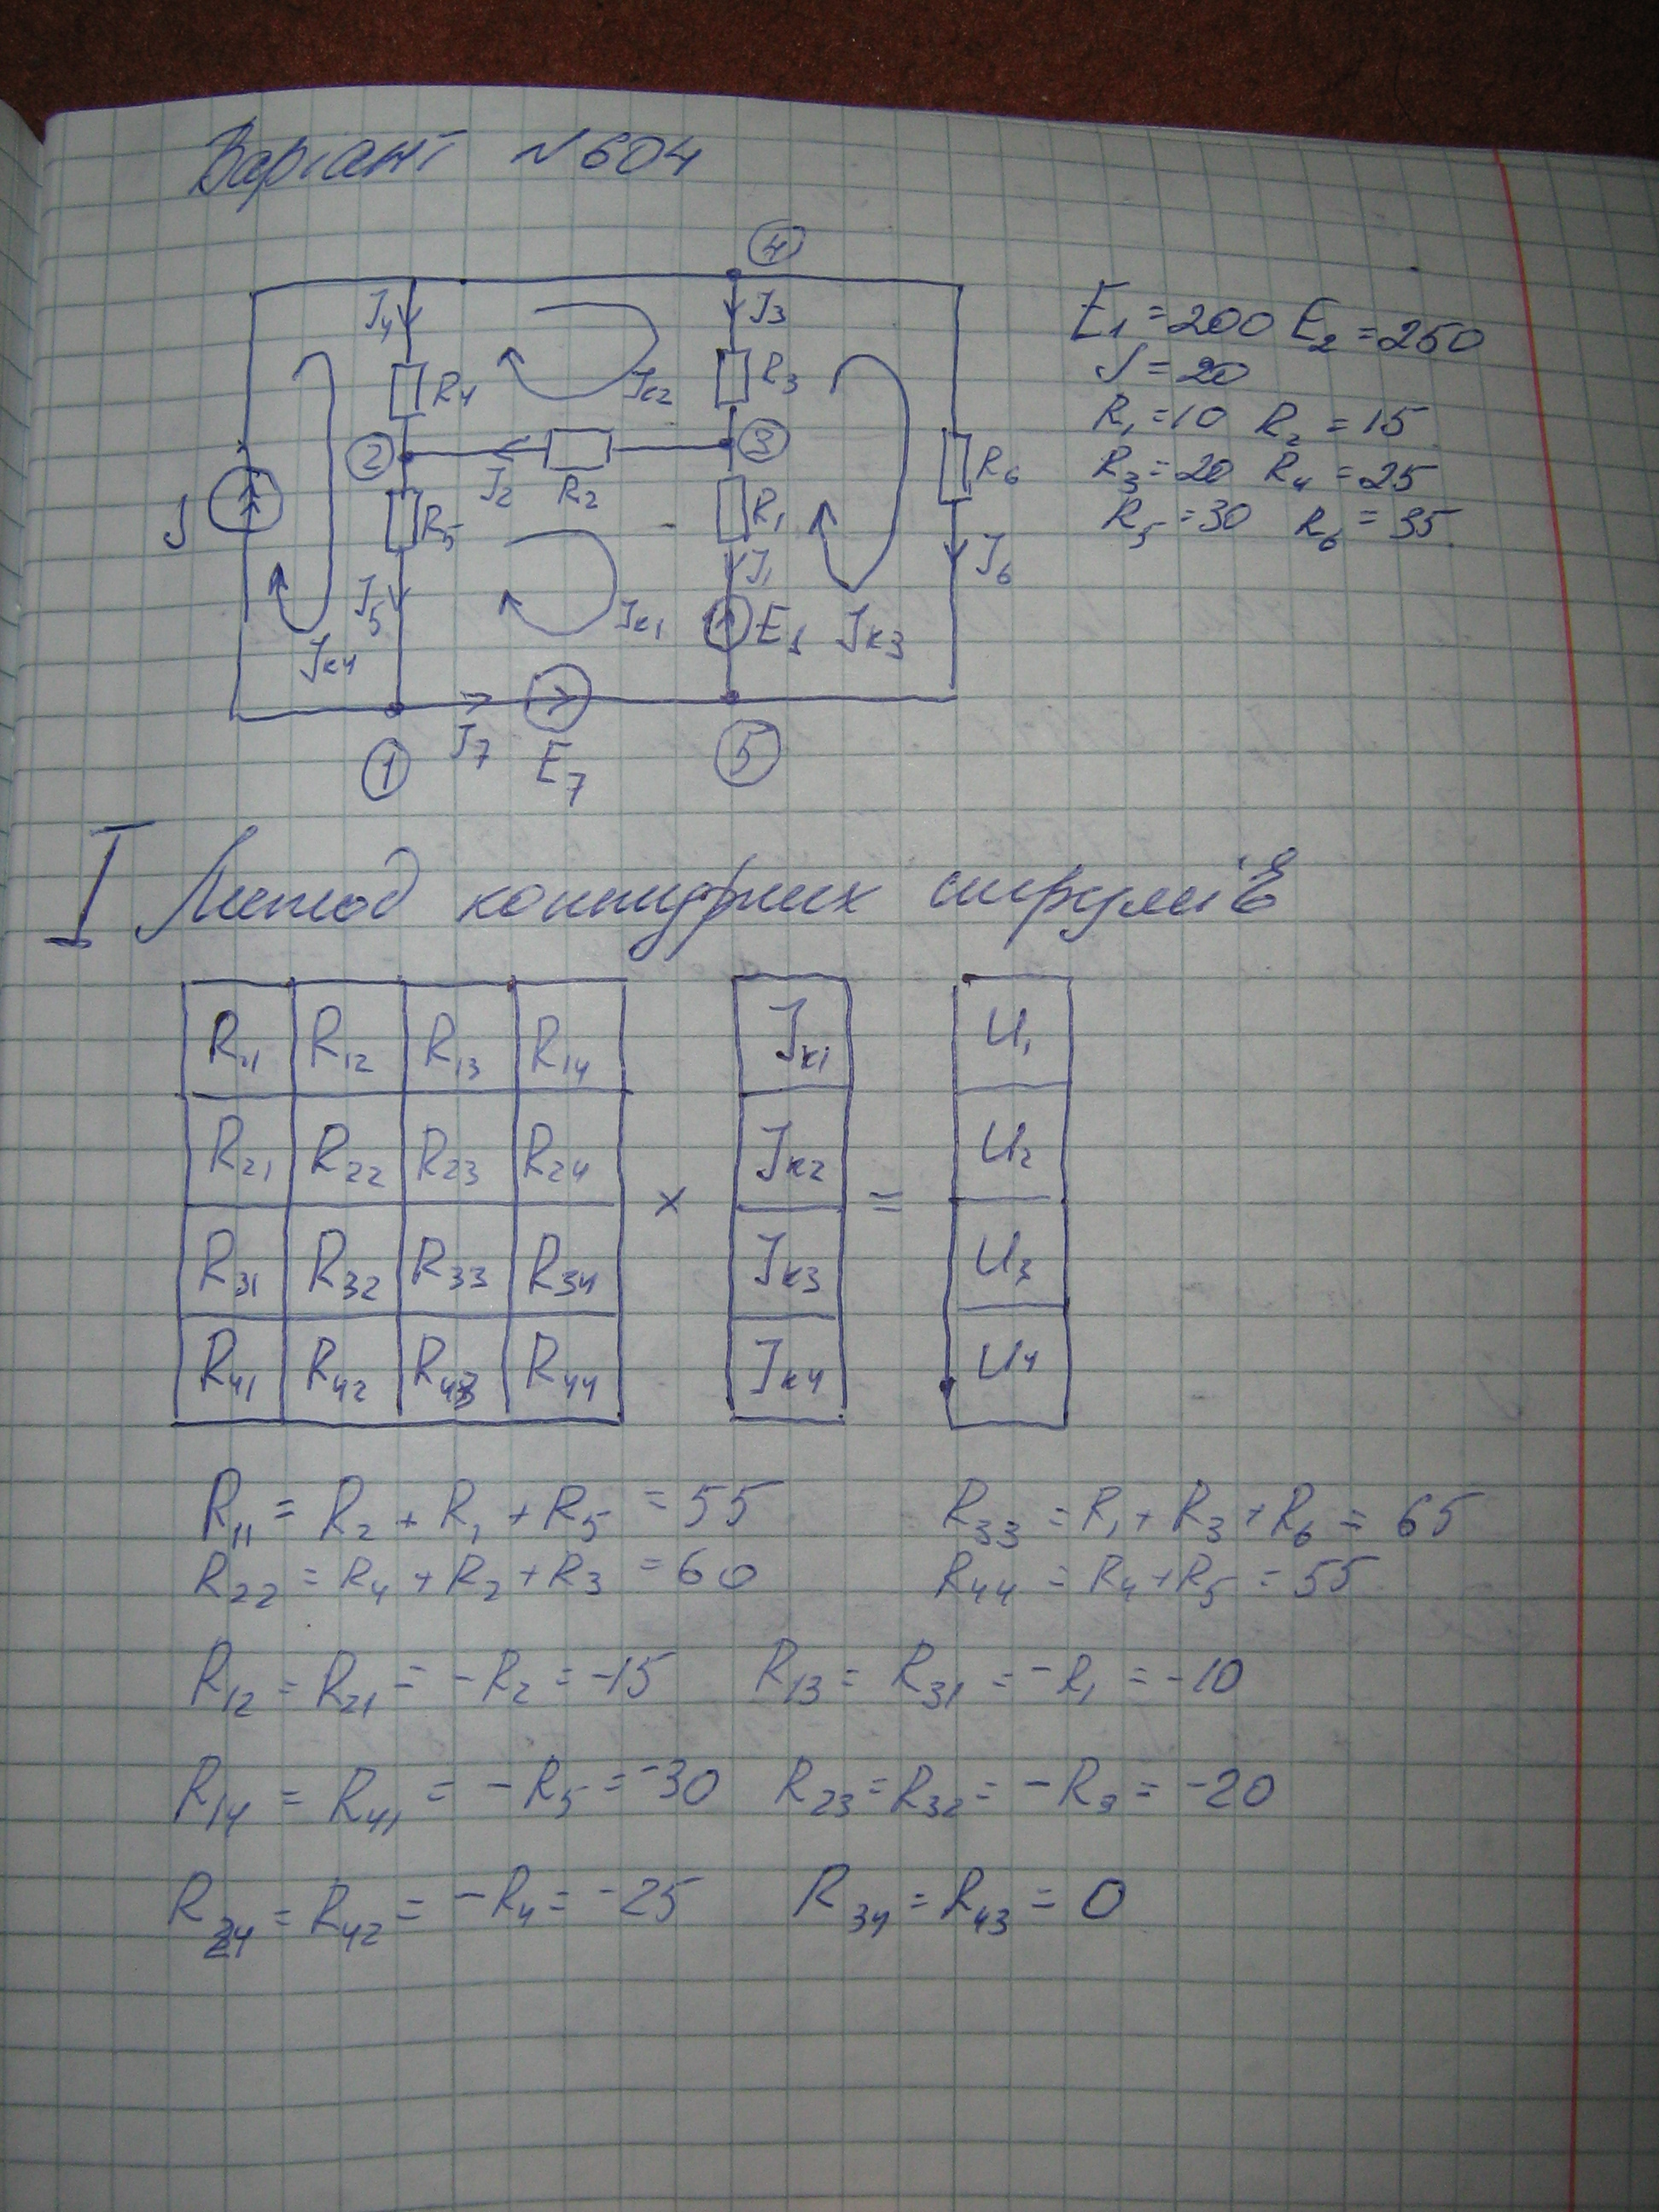 Варіант №604
4
J4
J3
R4
Jк2
R3
2
3
J
R5
J2
R2
R1
R6
J5
J1
J6
Jк4
Jк1
E1
Jк3
1
J7
E7
5
E1=200 E2=250
J=20
R1=10 R2=15
R3=20 R4=25
R5=30 R6=35
I Метод контурних струмів
R11 R12 R13 R14 Jк1 U1
R21 R22 R23 R24 Jк2 U2
× =
R31 R32 R33 R34 Jк3 U3
R41 R42 R43 R44 Jк4 U4
R11 = R2 + R1 + R5 = 55 R33 = R1 + R3 + R6 = 65
R22 = R4 + R2 + R3 = 60 R44 = R4 + R5 = 55
R12 = R21 = -R2 = -15 R13 = R31 = -R1 = -10
R14 = R41 = -R5 = -30 R23 = R32 = -R3 = -20
R24 = R42 = -R4 = -25 R34 = R43 = 0